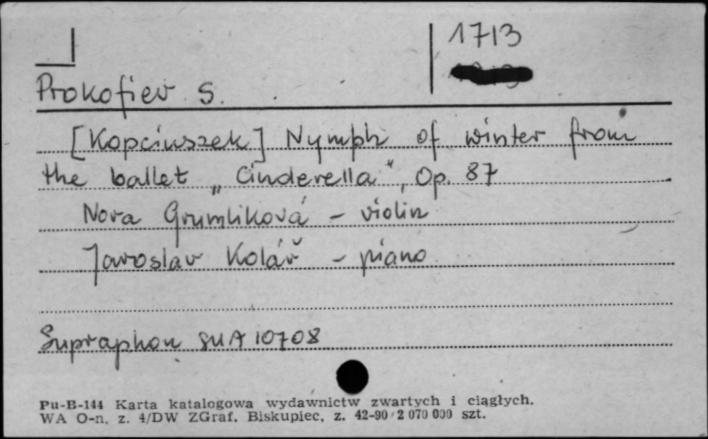 1713
Prokofiev S.
[Kopciuszek] Nymph of winter from
the ballet „Cinderella", Op. 87
Nora Grumliková – violin
Jaroslav Kolář – piano
Supraphon SUA 10708
Pu-B-144 Karta katalogowa wydawnictw zwartych i ciągłych.
WA O-n. z. 4/DW ZGraf. Biskupiec, z. 42-90/2 070 000 szt.